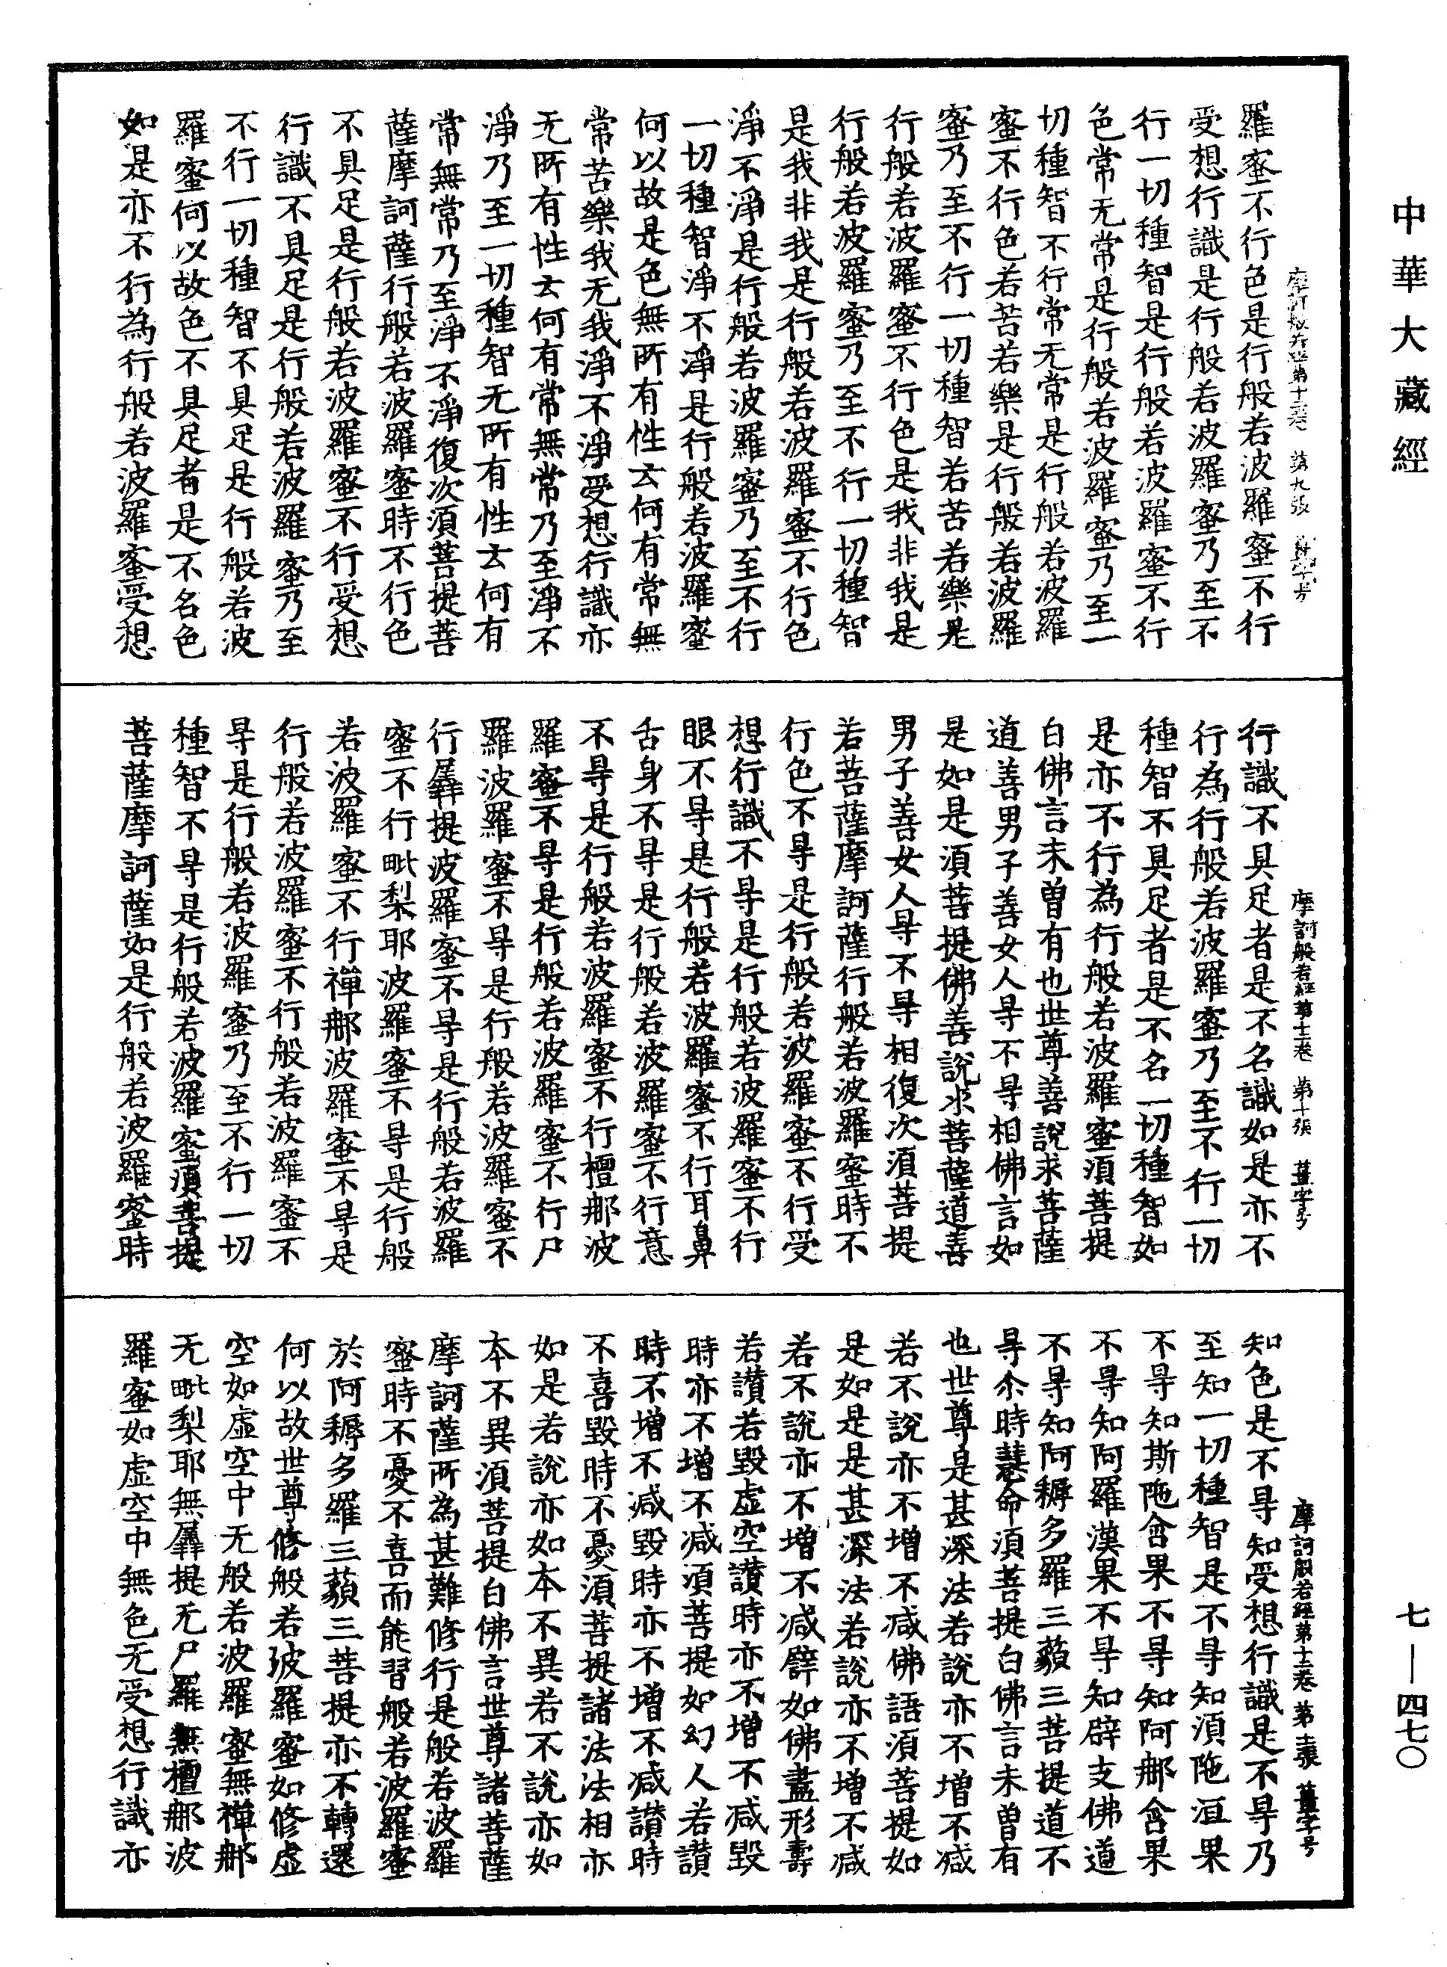 中華大藏經
羅蜜不行色是行般若波羅蜜不行
受想行識是行般若波羅蜜乃至不
行一切種智是行般若波羅蜜不行
色常无常是行般若波羅蜜乃至一
切種智不行常无常是行般若波羅
蜜不行色若苦若樂是行般若波羅
蜜乃至不行一切種智若苦若樂是
行般若波羅蜜不行色是我非我是
行般若波羅蜜乃至不行一切種智
是我非我是行般若波羅蜜不行色
淨不淨是行般若波羅蜜乃至不行
一切種智淨不淨是行般若波羅蜜
何以故是色無所有性云何有常無
常苦樂我无我淨不淨受想行識亦
无所有性云何有常無常乃至淨不
淨乃至一切種智无所有性云何有
常無常乃至淨不淨復次須菩提菩
薩摩訶薩行般若波羅蜜時不行色
不具足是行般若波羅蜜不行受想
行識不具足是行般若波羅蜜乃至
不行一切種智不具足是行般若波
羅蜜何以故色不具足者是不名色
如是亦不行為行般若波羅蜜受想
摩訶般若經第十二卷 第十張 薑字号
行識不具足者是不名識如是亦不
行為行般若波羅蜜乃至不行一切
種智不具足者是不名一切種智如
是亦不行為行般若波羅蜜須菩提
白佛言未曾有也世尊善說求菩薩
道善男子善女人㝵不㝵相佛言如
是如是須菩提佛善說求菩薩道善
男子善女人㝵不㝵相復次須菩提
若菩薩摩訶薩行般若波羅蜜時不
行色不㝵是行般若波羅蜜不行受
想行識不㝵是行般若波羅蜜不行
眼不㝵是行般若波羅蜜不行耳鼻
舌身不㝵是行般若波羅蜜不行意
不㝵是行般若波羅蜜不行檀那波
羅蜜不㝵是行般若波羅蜜不行尸
羅波羅蜜不㝵是行般若波羅蜜不
行羼提波羅蜜不㝵是行般若波羅
蜜不行毗梨耶波羅蜜不㝵是行般
若波羅蜜不行禪那波羅蜜不㝵是
行般若波羅蜜不行般若波羅蜜不
㝵是行般若波羅蜜乃至不行一切
種智不㝵是行般若波羅蜜須菩提
菩薩摩訶薩如是行般若波羅蜜時
摩訶般若經第十二卷 第十一張 薑字号
知色是不㝵知受想行識是不㝵乃
至知一切種智是不㝵知須陁洹果
不㝵知斯陁含果不㝵知阿那含果
不㝵知阿羅漢果不㝵知辟支佛道
不㝵知阿耨多羅三藐三菩提道不
㝵尒時慧命須菩提白佛言未曾有
也世尊是甚深法若說亦不增不減
若不說亦不增不減佛語須菩提如
是如是是甚深法若說亦不增不減
若不說亦不增不減譬如佛盡形壽
若讚若毀虛空讚時亦不增不減毀
時亦不增不減須菩提如幻人若讚
時不增不減毀時亦不增不減讚時
不喜毀時不憂須菩提諸法法相亦
如是若說亦如本不異若不說亦如
本不異須菩提白佛言世尊諸菩薩
摩訶薩所為甚難修行是般若波羅
蜜時不憂不喜而能習般若波羅蜜
於阿耨多羅三藐三菩提亦不轉還
何以故世尊修般若波羅蜜如修虛
空如虛空中无般若波羅蜜無禪那
无毗梨耶無羼提无尸羅無檀那波
羅蜜如虛空中無色无受想行識亦
七—四七〇